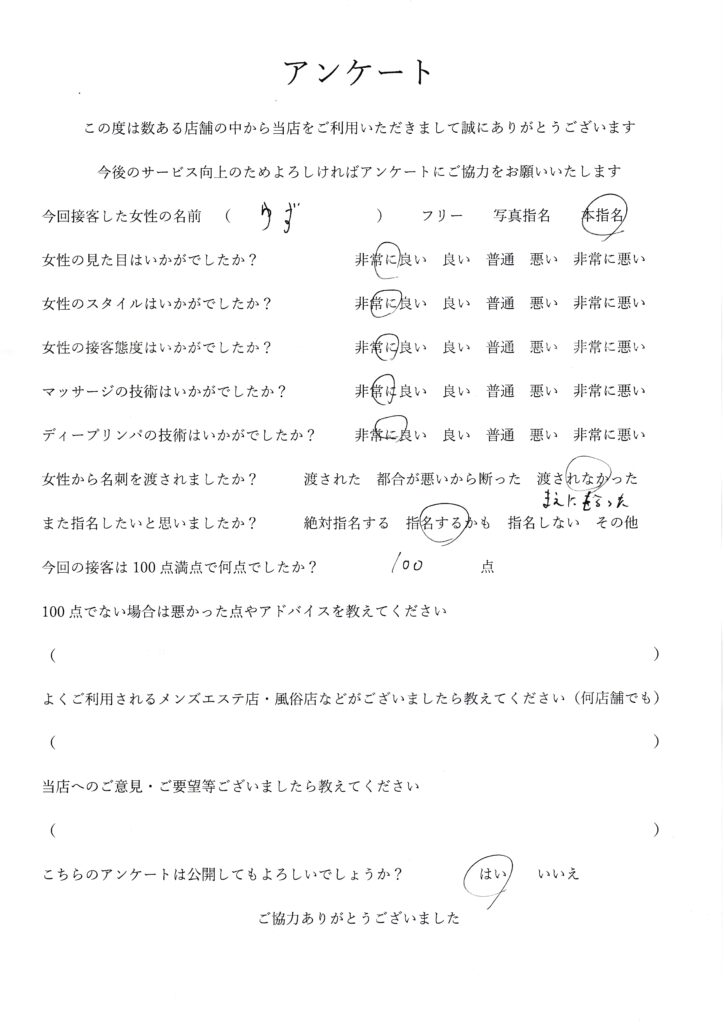 アンケート
この度は数ある店舗の中から当店をご利用いただきまして誠にありがとうございます
今後のサービス向上のためよろしければアンケートにご協力をお願いいたします
今回接客した女性の名前 （ ゆず ） フリー 写真指名 本指名
女性の見た目はいかがでしたか？ 非常に良い 良い 普通 悪い 非常に悪い
女性のスタイルはいかがでしたか？ 非常に良い 良い 普通 悪い 非常に悪い
女性の接客態度はいかがでしたか？ 非常に良い 良い 普通 悪い 非常に悪い
マッサージの技術はいかがでしたか？ 非常に良い 良い 普通 悪い 非常に悪い
ディープリンパの技術はいかがでしたか？ 非常に良い 良い 普通 悪い 非常に悪い
女性から名刺を渡されましたか？ 渡された 都合が悪いから断った 渡されなかった
まえにもらった
また指名したいと思いましたか？ 絶対指名する 指名するかも 指名しない その他
今回の接客は100点満点で何点でしたか？ 100 点
100点でない場合は悪かった点やアドバイスを教えてください
（ ）
よくご利用されるメンズエステ店・風俗店などがございましたら教えてください（何店舗でも）
（ ）
当店へのご意見・ご要望等ございましたら教えてください
（ ）
こちらのアンケートは公開してもよろしいでしょうか？ はい いいえ
ご協力ありがとうございました